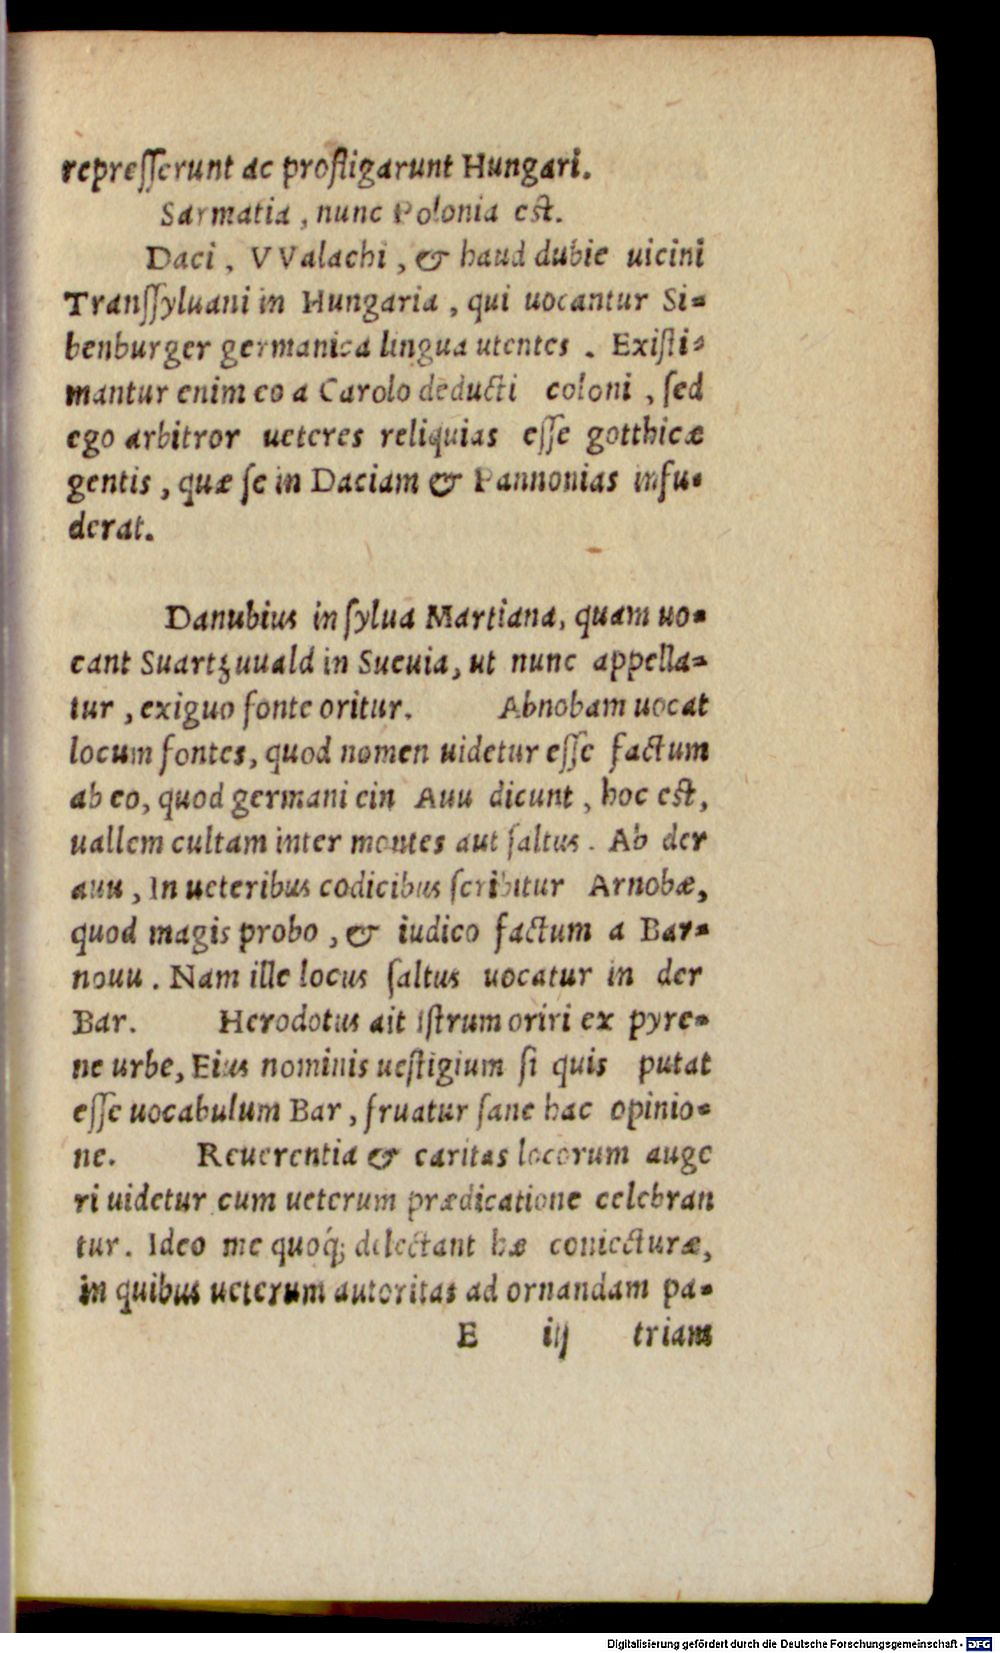 repreſſerunt ac profligarunt Hungari.
Sarmatia, nunc Polonia est.
Daci, VValachi, & haud dubie uicini
Tranſſyluani in Hungaria, qui uocantur Si-
benburger germanica lingua utentes. Exiſti-
mantur enim eo a Carolo deducti coloni, ſed
ego arbitror ueteres reliquias eſſe gotthicæ
gentis, quæ ſe in Daciam & Pannonias infu-
derat.
Danubius in ſylua Martiana, quam uo-
cant Suartzuuald in Sueuia, ut nunc appella-
tur, exiguo fonte oritur. Abnobam uocat
locum fontes, quod nomen uidetur eſſe factum
ab eo, quod germani ein Auu dicunt, hoc est,
uallem cultam inter montes aut ſaltus. Ab der
auu, In ueteribus codicibus ſcribitur Arnobæ,
quod magis probo, & iudico factum a Bar-
nouu. Nam ille locus ſaltus uocatur in der
Bar. Herodotus ait Iſtrum oriri ex pyre-
ne urbe, Eius nominis ueſtigium ſi quis putat
eſſe uocabulum Bar, fruatur ſane hac opinio-
ne. Reuerentia & caritas locorum auge
ri uidetur cum ueterum prædicatione celebran
tur. Ideo me quoq; delectant hæ coniecturæ,
in quibus ueterum autoritas ad ornandam pa-
E iij triam
Digitalisierung gefördert durch die Deutsche Forschungsgemeinschaft - DFG